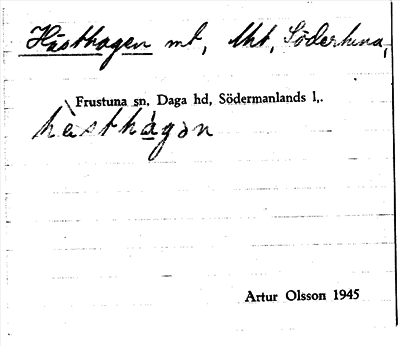 Hästhagen mt,
Frustuna sn, Daga hd, Södermanlands l,.
hästhágən
Artur Olsson 1945